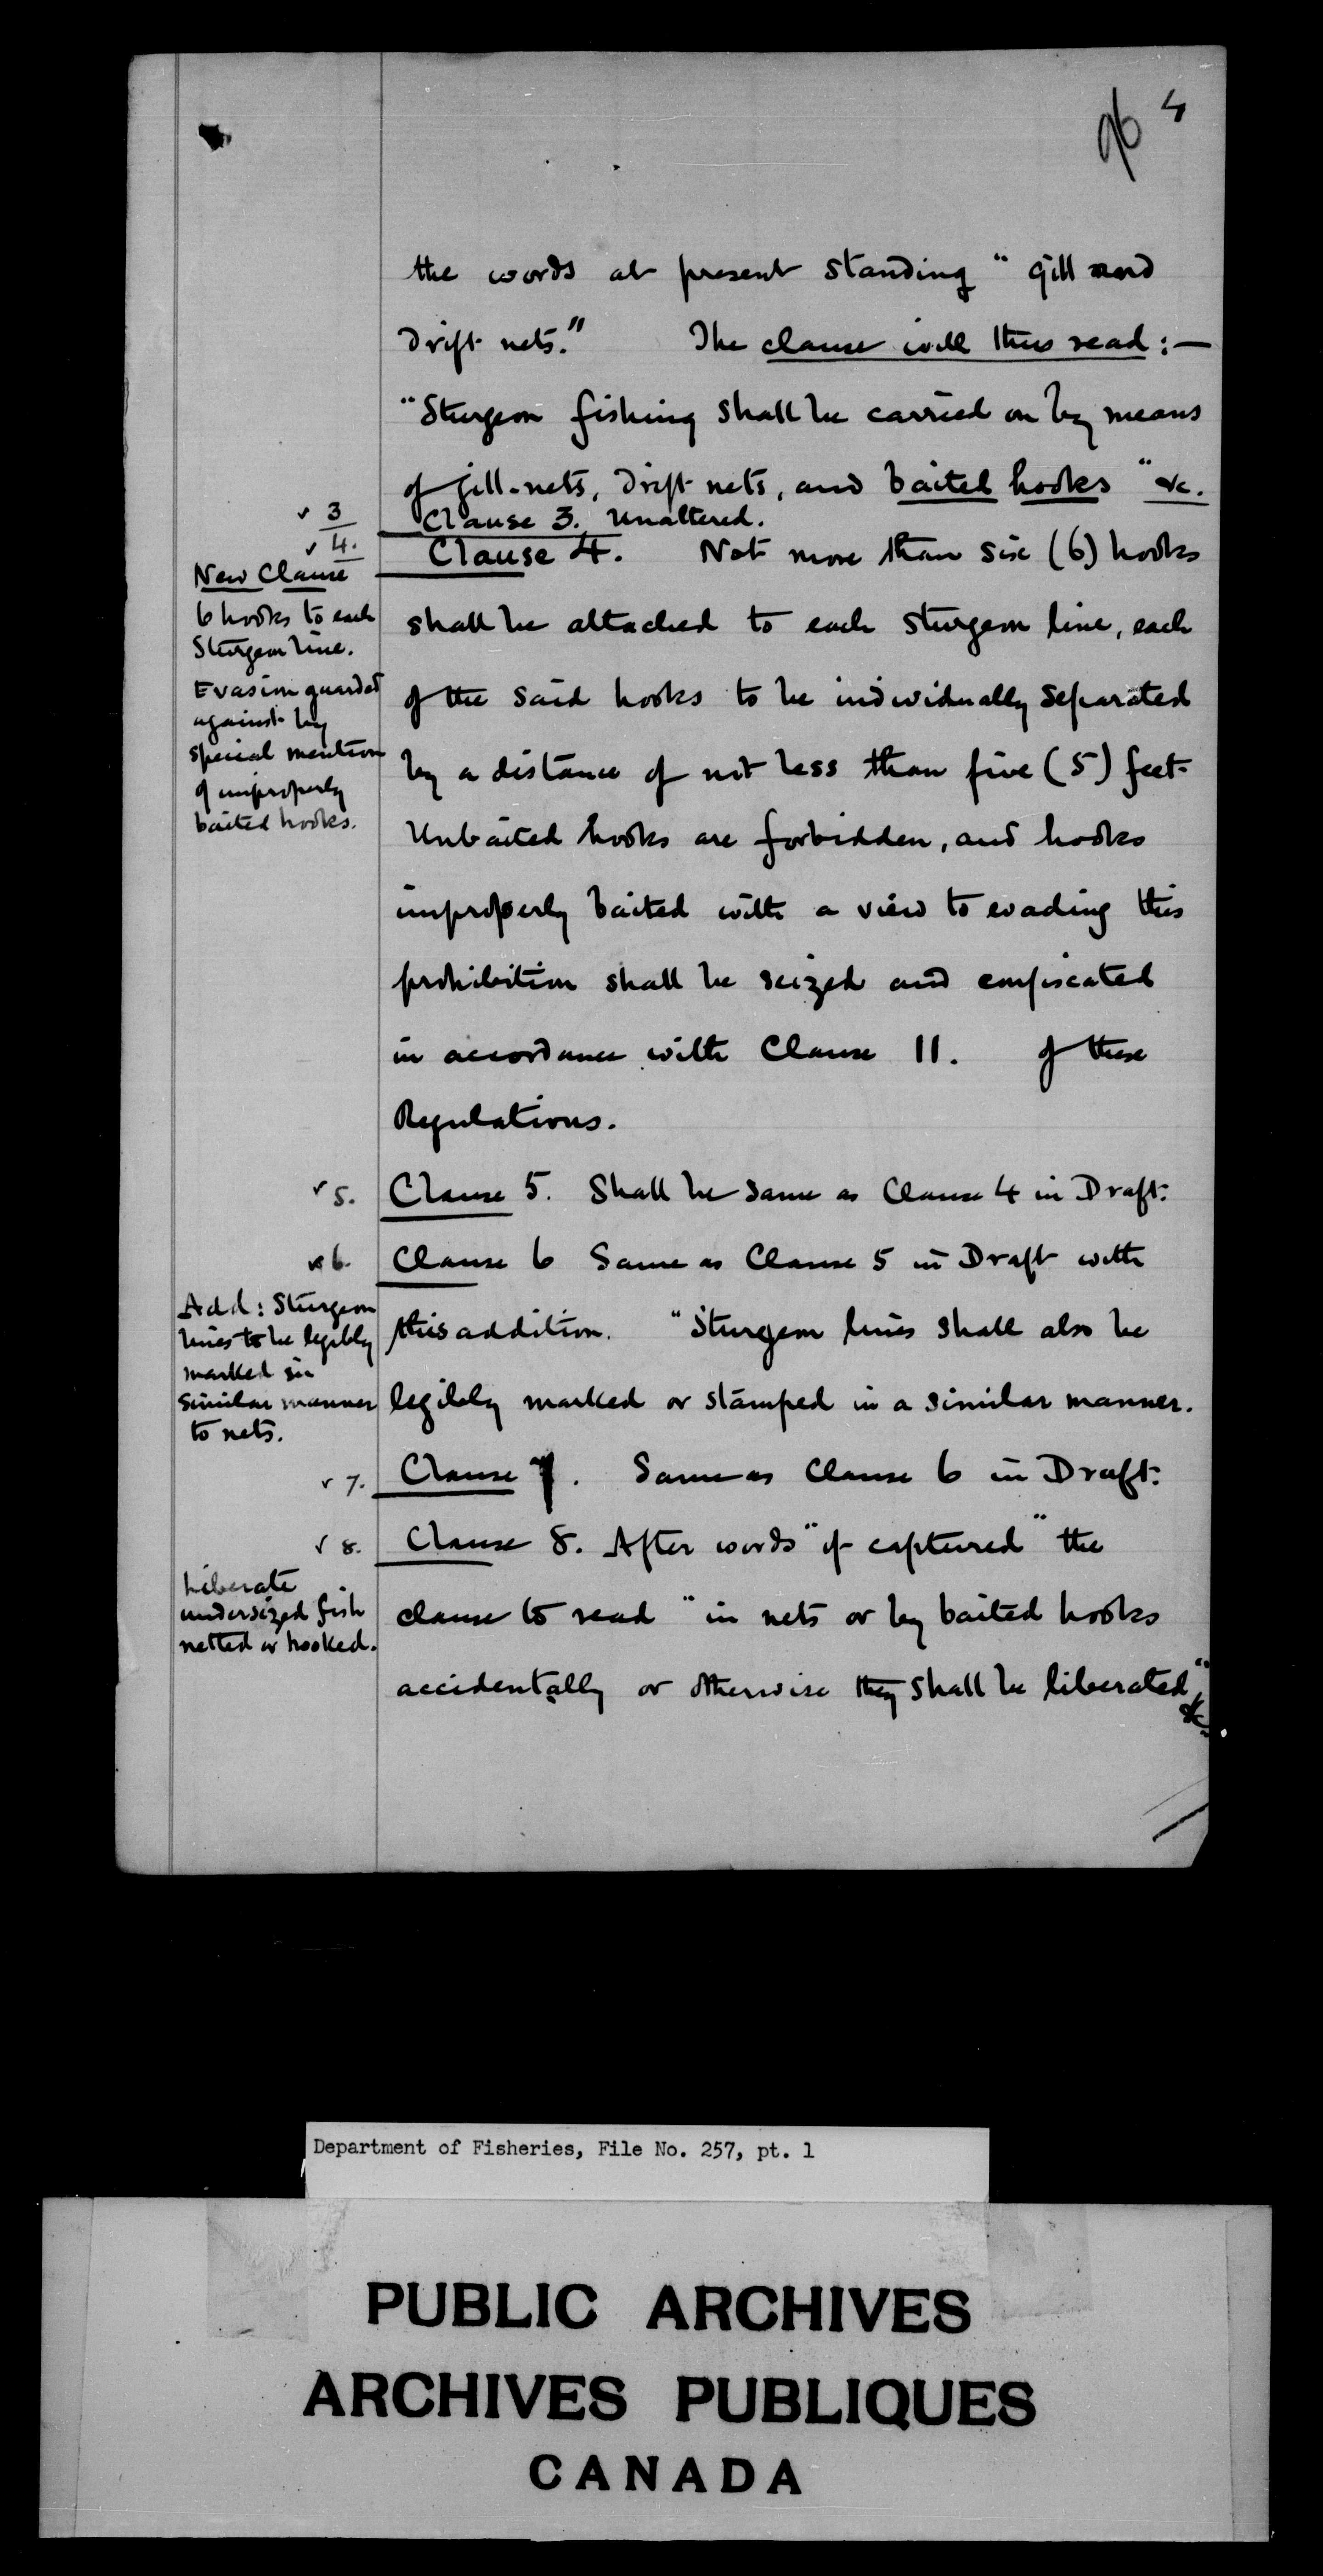 96 4
the words at present standing "gill and
Drift nets." The clause will thus read:—
"Sturgeon fishing shall be carried on by means
of gill-nets, Drift nets, and baited hooks" &c.
✓ 3
Clause 3. Unaltered.
✓ 4.
Clause 4. Not more than six (6) hooks
New Clause
6 hooks to each
Sturgeon line.
Evasion guarded
against by
special mention
of improperly
baited hooks.
shall be attached to each Sturgeon line, each
of the said hooks to be individually separated
by a distance of not less than five (5) feet.
Unbaited hooks are forbidden, and hooks
improperly baited with a view to evading this
prohibition shall be seized and confiscated
in accordance with Clause 11. of these
Regulations.
✓ 5.
Clause 5. Shall be same as Clause 4 in Draft.
✓ 6.
Clause 6 Same as Clause 5 in Draft with
Add: Sturgeon
lines to be legibly
marked in
similar manner
to nets.
this addition. "Sturgeon lines shall also be
legibly marked or stamped in a similar manner.
✓ 7.
Clause 7. Same as Clause 6 in Draft.
✓ 8.
Clause 8. After words "if captured" the
Liberate
undersized fish
netted or hooked.
clause to read "in nets or by baited hooks
accidentally or otherwise they shall be liberated" &c.
Department of Fisheries, File No. 257, pt. 1
PUBLIC ARCHIVES
ARCHIVES PUBLIQUES
CANADA